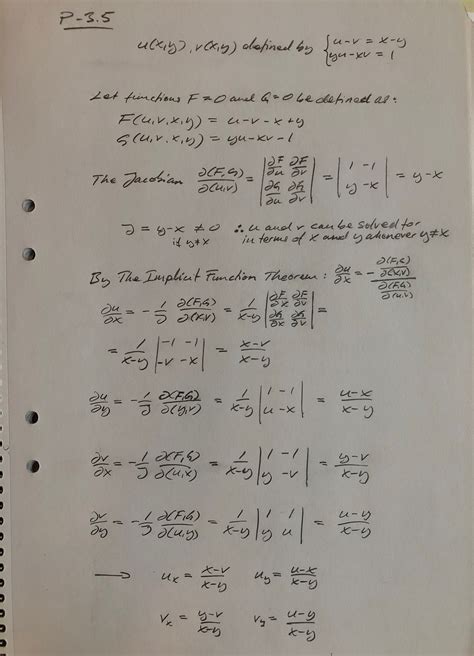 P-3.5
u(x,y), v(x,y) defined by { u-v = x-y
yu-xv = 1
Let functions F=0 and G=0 be defined as:
F(u,v,x,y) = u-v-x+y
G(u,v,x,y) = yu-xv-1
The Jacobian ∂(F,G)/∂(u,v) = |∂F/∂u ∂F/∂v; ∂G/∂u ∂G/∂v| = |1 -1; y -x| = y-x
J = y-x ≠ 0 if y≠x ∴ u and v can be solved for
in terms of x and y whenever y≠x
By The Implicit Function Theorem: ∂u/∂x = - (∂(F,G)/∂(x,v))/(∂(F,G)/∂(u,v))
∂u/∂x = -1/J ∂(F,G)/∂(x,v) = 1/(x-y) |∂F/∂x ∂F/∂v; ∂G/∂x ∂G/∂v| =
= 1/(x-y) |-1 -1; -v -x| = (x-v)/(x-y)
∂u/∂y = -1/J ∂(F,G)/∂(y,v) = 1/(x-y) |1 -1; u -x| = (u-x)/(x-y)
∂v/∂x = -1/J ∂(F,G)/∂(u,x) = 1/(x-y) |1 -1; y -v| = (y-v)/(x-y)
∂v/∂y = -1/J ∂(F,G)/∂(u,y) = 1/(x-y) |1 1; y u| = (u-y)/(x-y)
→ u_x = (x-v)/(x-y) u_y = (u-x)/(x-y)
v_x = (y-v)/(x-y) v_y = (u-y)/(x-y)